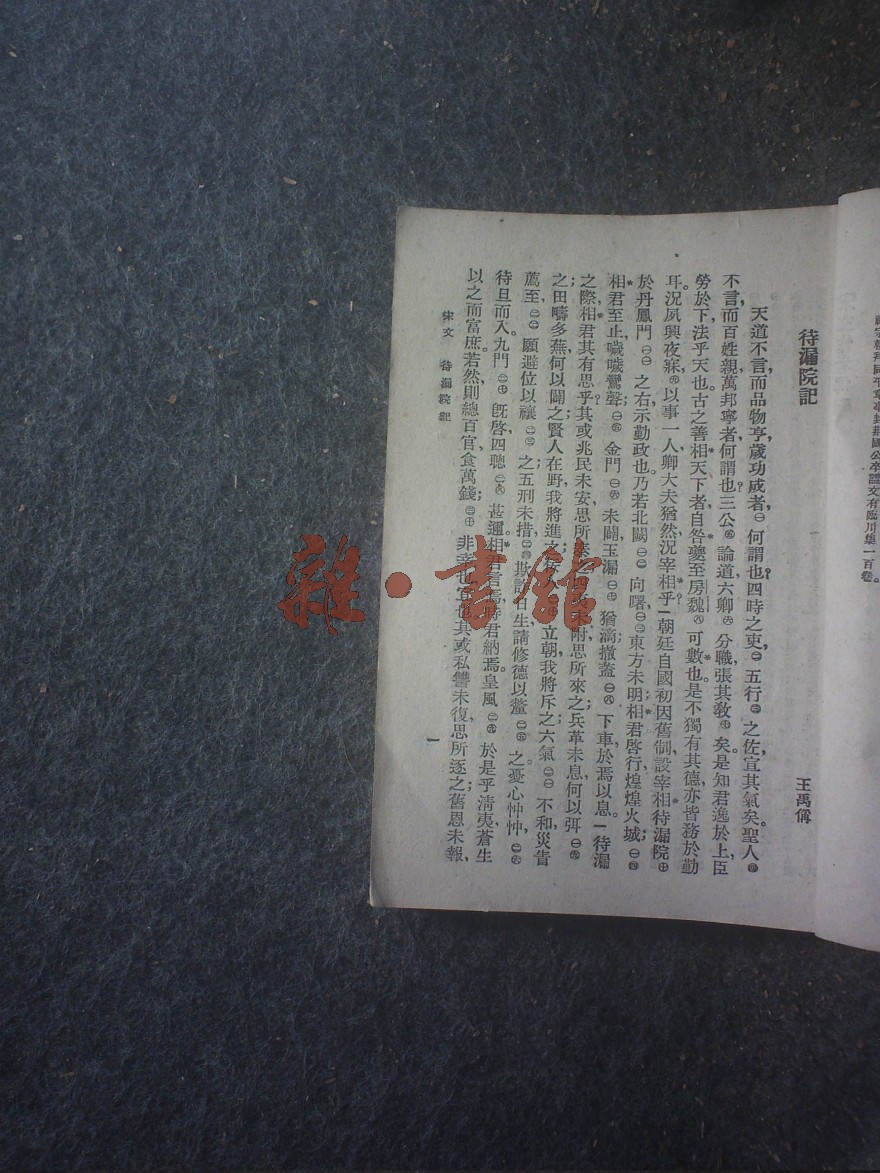 神宗朝拜同平章事封荊國公卒諡文有臨川集一百卷。
待漏院記
王禹偁
天道不言,而品物亨歲功成者,㊀何謂也?四時之吏,㊁五行㊂之佐,宣其氣矣。聖人㊃
不言,而百姓親,萬邦寧者,何謂也?三公㊄論道,六卿㊅分職,張其教㊆矣。是知君逸於上,臣
勞於下,法乎天也。古之善相天下者,自咎夔至房魏㊇可數也。是不獨有其德,亦皆務於勤
耳。況夙興夜寐,㊈以事一人,卿大夫猶然,況宰相乎?一朝廷自國初因舊制,設宰相待漏院㊉
於丹鳳門㊀㊀之右,示勤政也。乃若北闕㊀㊁向曙,㊀㊂東方未明,相君啓行,煌煌火城;㊀㊃
相君至止,噦噦鸞聲。㊀㊄金門㊀㊅未闢,玉漏㊀㊆猶滴,撤蓋㊀㊇下車,於焉以息。一待漏
之際,相君其有思乎?其或兆民未安,思所泰之;未附,思所來之;兵革未息,何以弭㊀㊈
之;田疇多蕪,何以闢之;賢人在野,我將進之;立朝,我將斥之;六氣㊁㊀不和,災眚
薦至,㊁㊁願避位以禳㊁㊂之;五刑未措,㊁㊃欺詐日生,請修德以釐㊁㊄之。憂心忡忡,㊁㊅
待旦而入,九門㊁㊆既啓,四聰㊁㊇甚邇。相君言焉,時君納焉。皇風㊁㊈於是乎清夷,蒼生
以之而富庶。若然,則總百官,食萬錢,㊂㊉非幸也,宜也。其或私讐未復,思所逐之;舊恩未報,
宋文 待漏院記
一
雜·書館